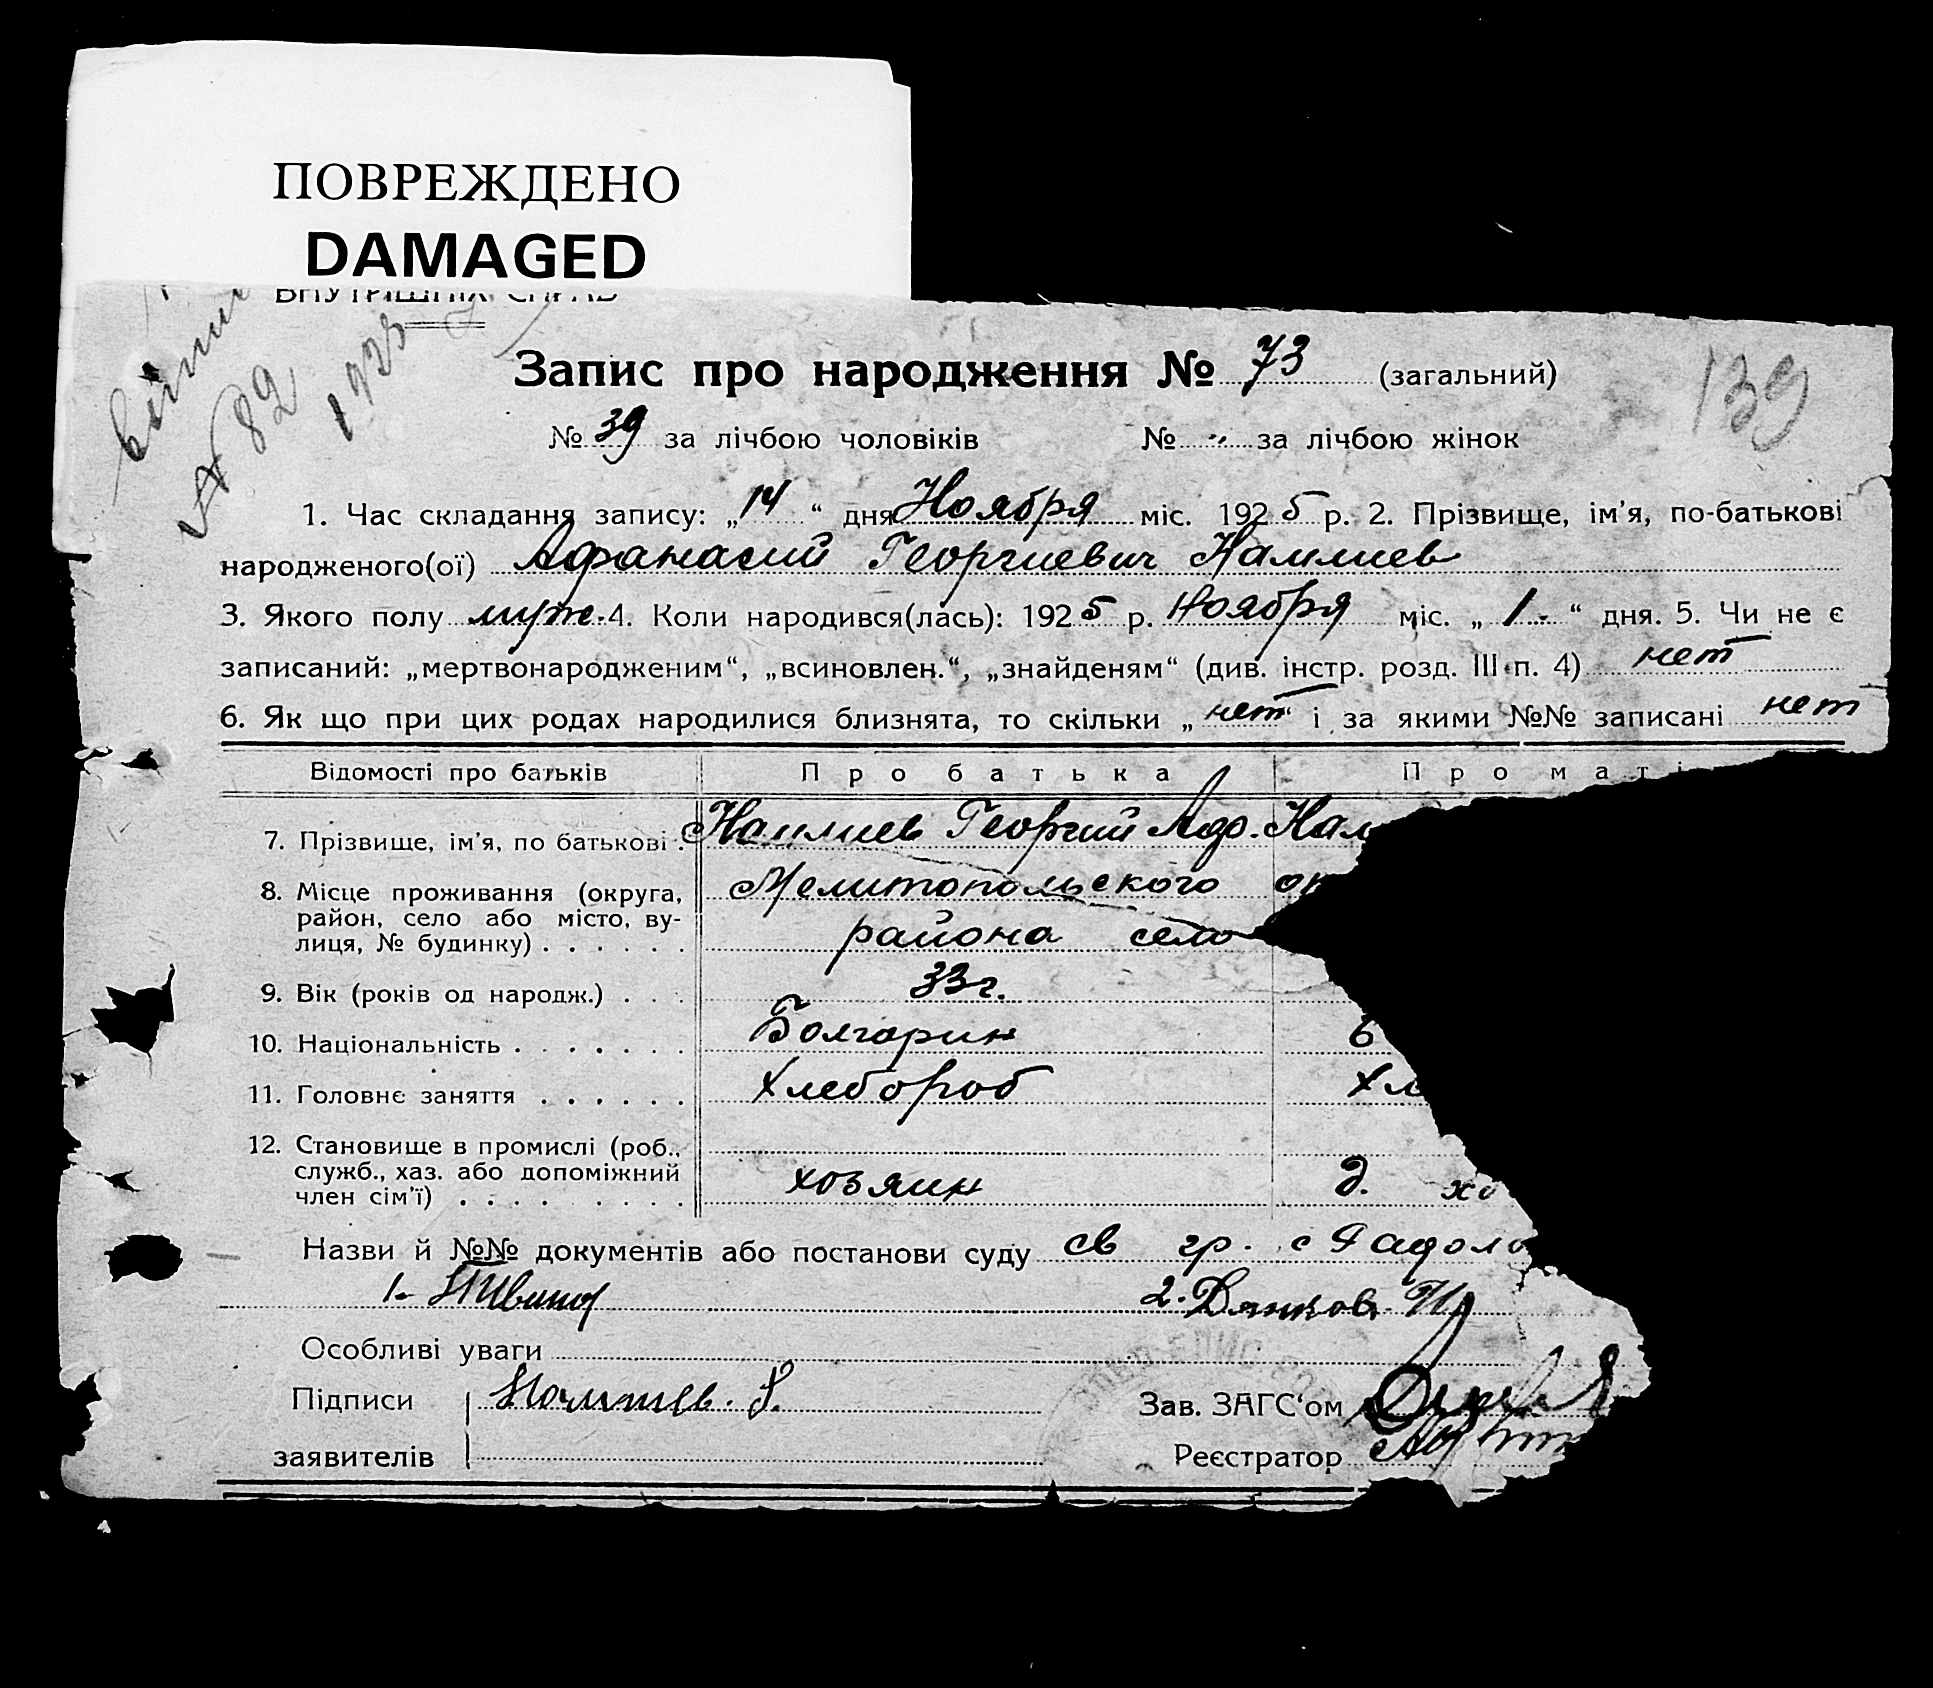 ПОВРЕЖДЕНО
DAMAGED
ВНУТРІШНІХ СПРАВ
№ 82
Запис про народження № 73 (загальний)
139
№ 39 за лічбою чоловіків № „ за лічбою жінок
1. Час складання запису: „14“ дня Ноября міс. 1925 р. 2. Прізвище, ім'я, по-батькові
народженого(ої) Афанасий Георгиевич
3. Якого полу муж. 4. Коли народився(лась): 1925 р. Ноября міс. „1.“ дня. 5. Чи не є
записаний: „мертвонародженим“, „всиновлен.“, „знайденям“ (див. інстр. розд. III п. 4) нет
6. Як що при цих родах народилися близнята, то скільки „нет“ і за якими №№ записані нет
Відомості про батьків Про батька Про маті
7. Прізвище, ім'я, по батькові. Георгий
8. Місце проживання (округа, Мелитопольского
район, село або місто, ву-
лиця, № будинку) . . . . . . района село
9. Вік (років од народж.) . . . 33 г.
10. Національність . . . . . . . Болгарин б
11. Головнє заняття . . . . . . Хлебороб хл
12. Становище в промислі (роб.,
служб., хаз. або допоміжний
член сім'ї) . . . . . . . . хозяин д. хо
Назви й №№ документів або постанови суду св гр. с Радоло
1. 2. Дянков
Особливі уваги
Підписи
Зав. ЗАГС'ом
заявителів
Реєстратор